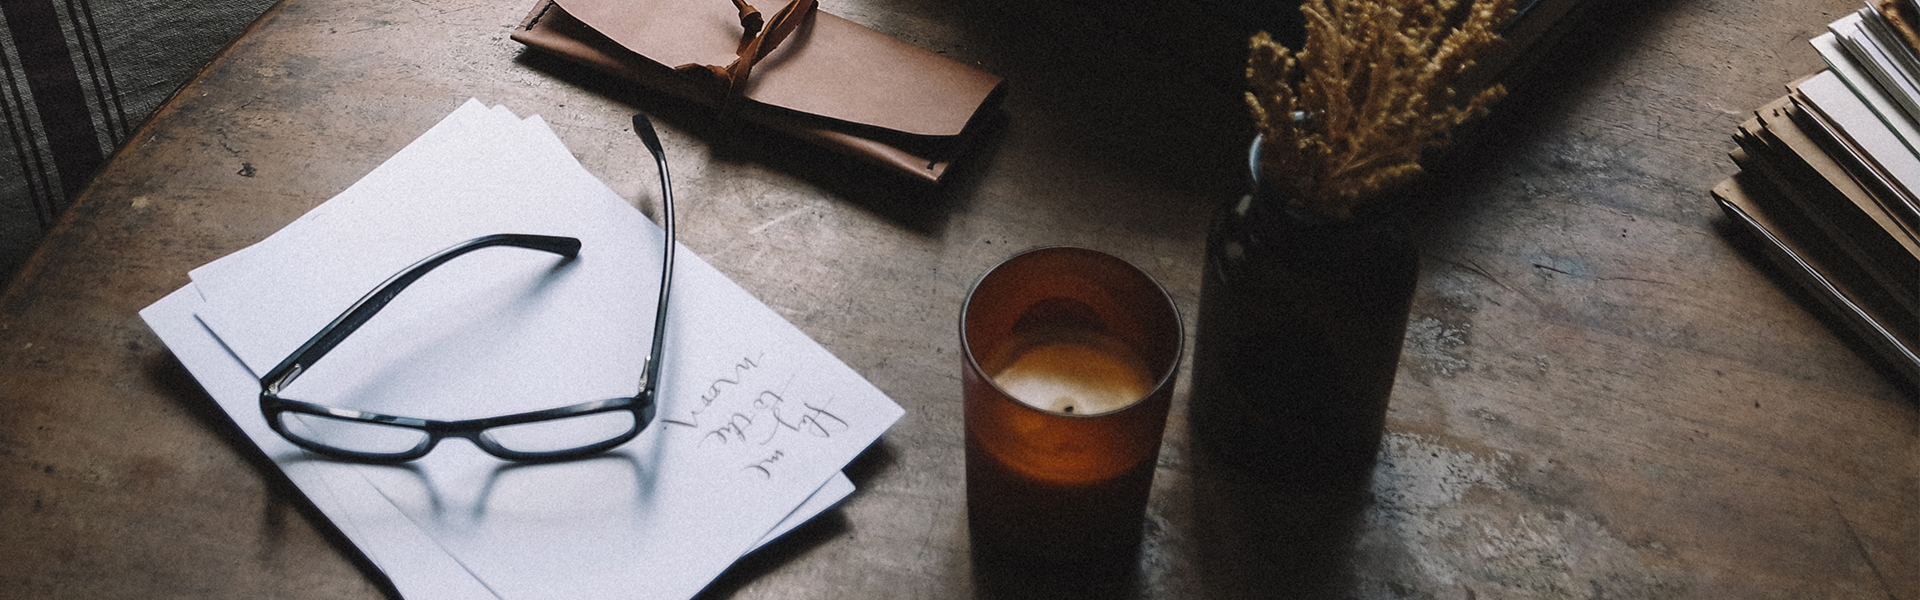 fly me
to the
moon